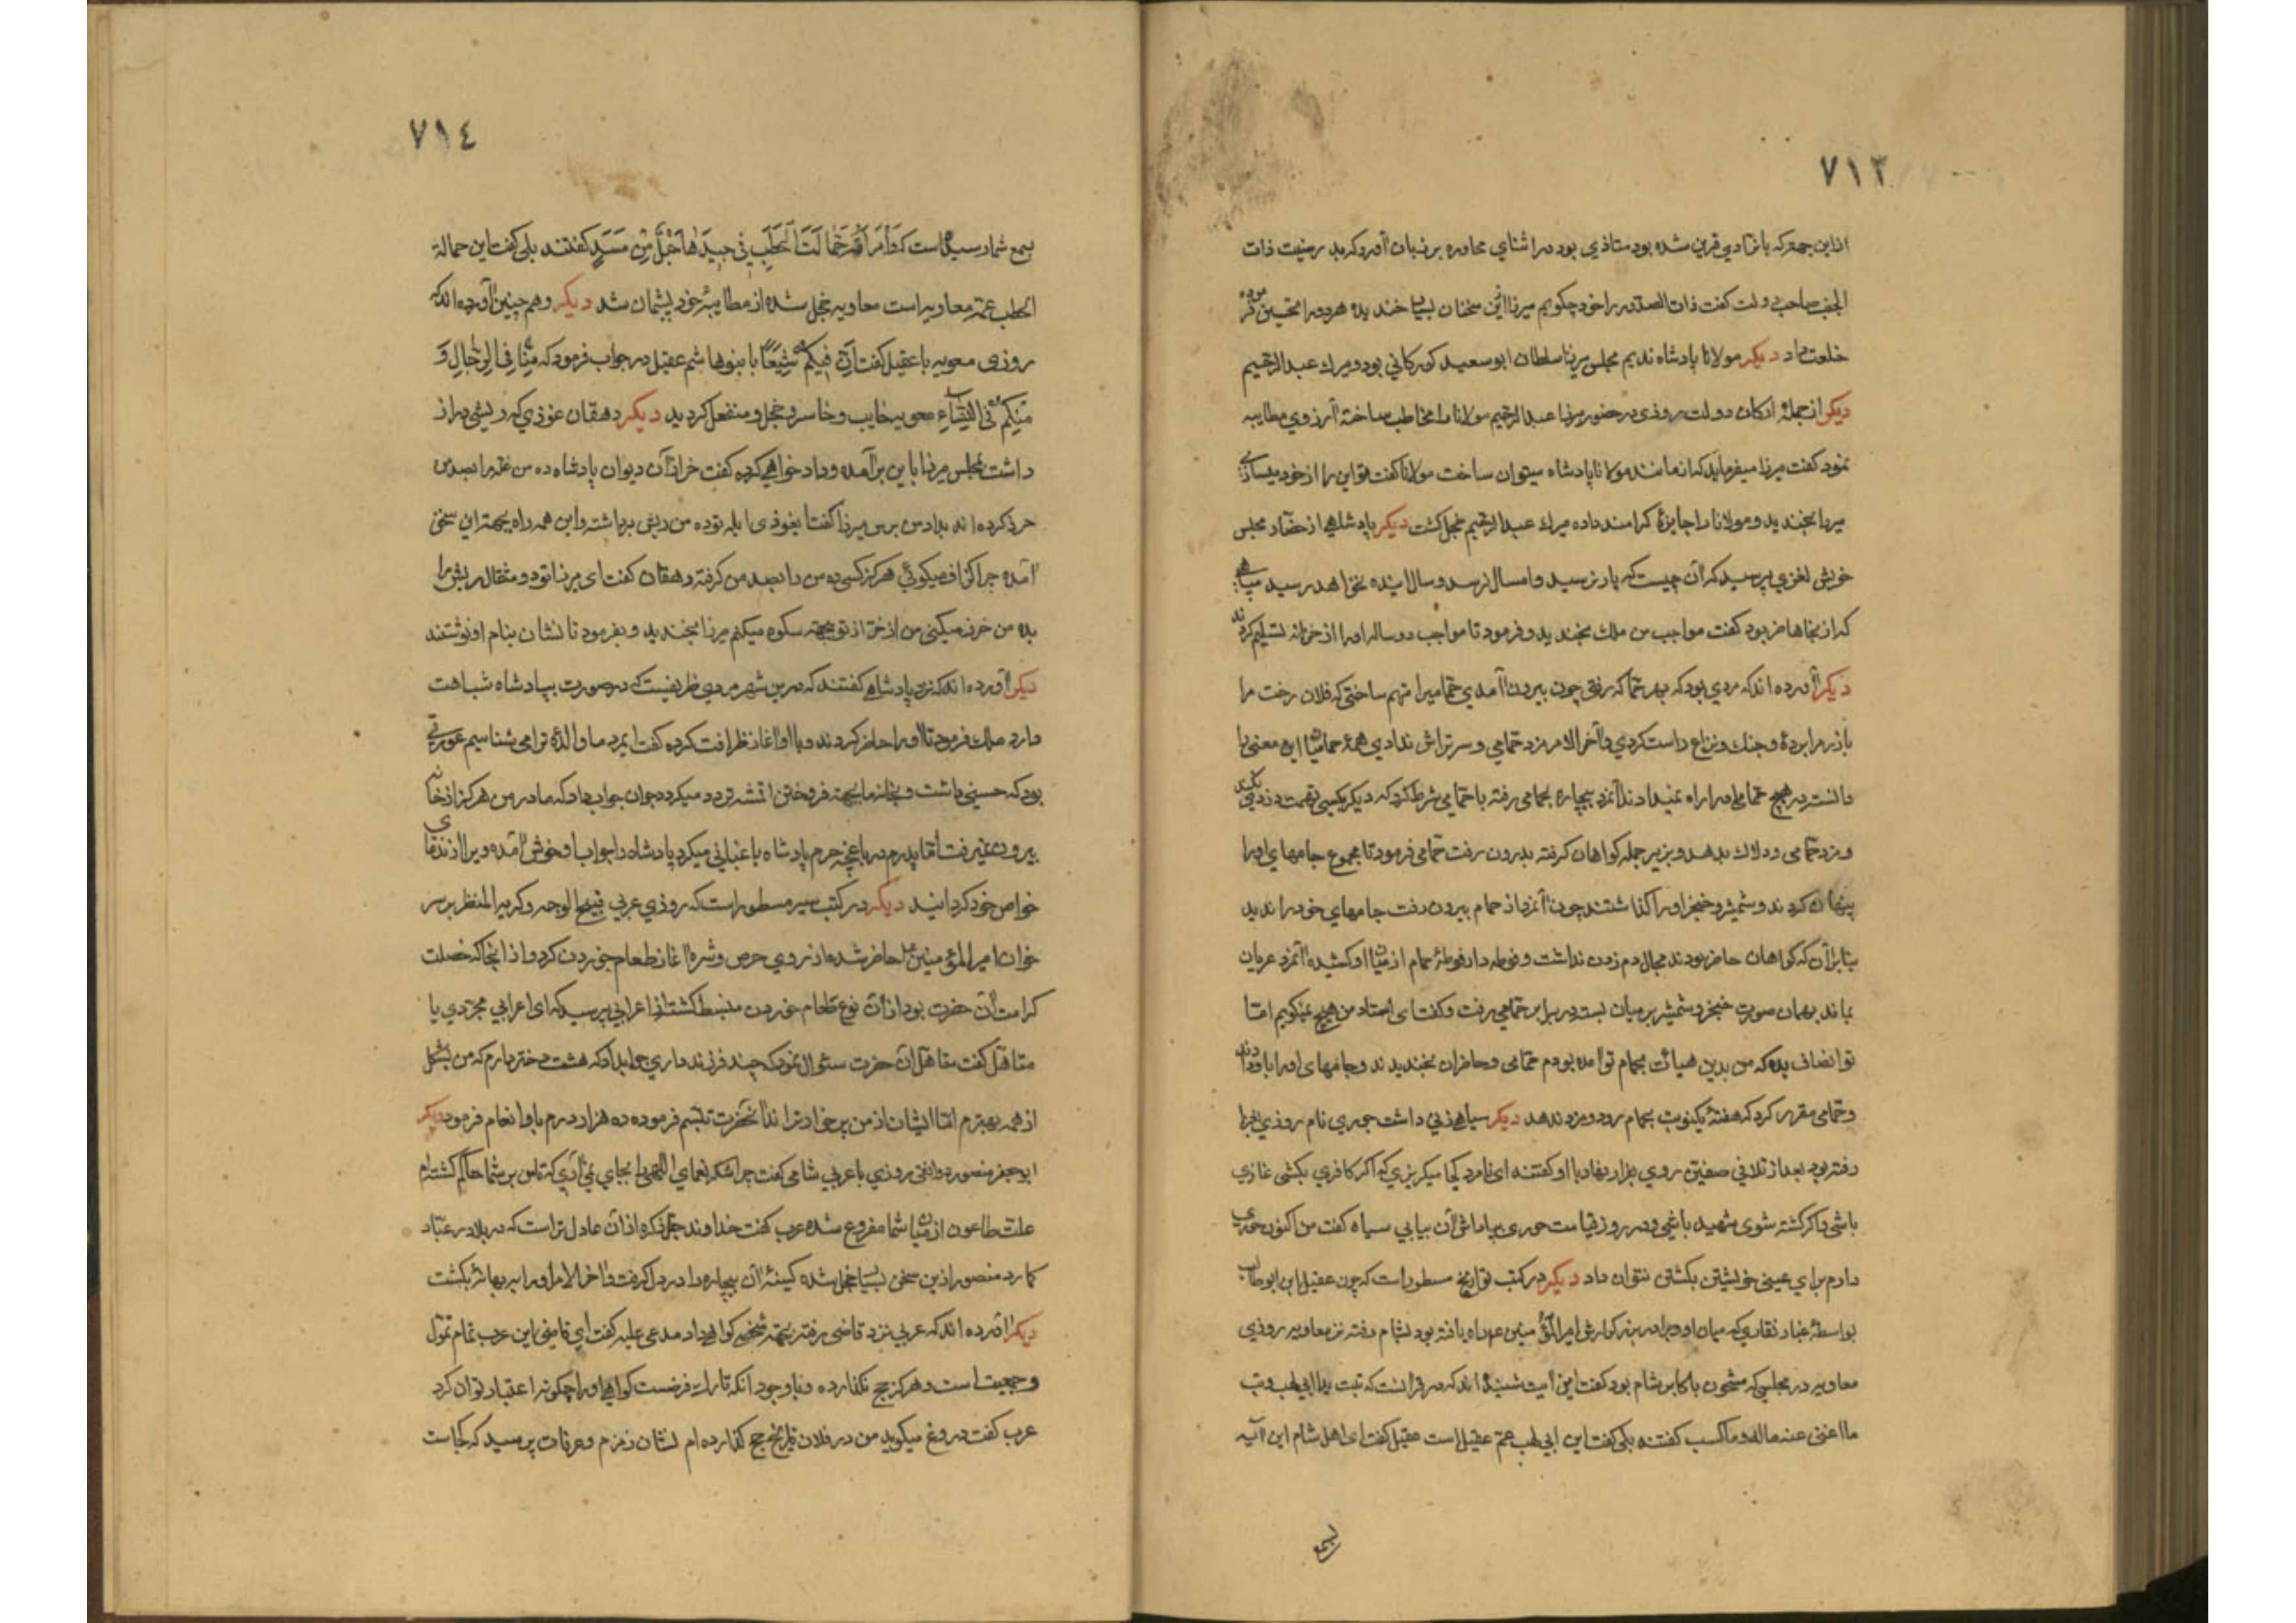 ٧١٣
ازاین جمع که با شادی قرین شده بود متاذی بود در اثنای محاوره بر زبان آورد که بد رمنیت ذات
الجنب صاحب دولت گفت ذات الصدر را خود چکویم میرزا این سخنان بسیار خندیده هردو را تحسین فرموده
خلعت داد دیکر مولانا پادشاه ندیم مجلس میرزا سلطان ابوسعید کورکانی بود و میرك عبدالرحیم
دیکر از جملهٔ ارکان دولت روزی در حضور میرزا عبدالرحیم مولانا را مخاطب ساخته از روی مطایبه
نمود کفت میرزا میفرماید که از مانند مولانا پادشاه میتوان ساخت مولانا کفت تو این را از خود میسازی
میرزا بخندید و مولانا را جایزهٔ کرامند داده میرك عبدالرحیم خجل کشت دیکر پادشاهی از حضار مجلس
خویش لغزی پرسید که آن چیست که پار نرسید و امسال نرسد و سال آینده نخواهد رسید سپاهی
که از نجا حاضر بود کفت مواجب من ملك بخندید و فرمود تا مواجب دو ساله او را از خزانه تسلیم کردند
دیکر آورده اند که مردی بود که بهر حمام که رفتی چون بیرون آمدی حمامیرا متهم ساختی که فلان رخت مرا
باز در مرا بردهٔ و جنك و نزاع راست کردی و آخر الامر مزد حمامی و سرتراش ندادی همهٔ حمامیان این معنی را
دانسته در هیچ حمامی او را راه نمیدادند آنمرد بیچاره بحمامی رفته با حمامی شرط کرد که دیکر بکسی تهمت دزدی نکند
و مزد حمامی و دلاك بدهد و بزیر جمله کواهان کرفته بدرون رفت حمامی فرمود تا مجموع جامهای او را
پنهان کردند و شمشیر و خنجر او را کذاشتند چون آنمرد از حمام بیرون رفت جامهای خود را ندید
بنابر آن که کواهان حاضر بودند مجال دم زدن نداشت و فوطه دار فوطهٔ حمام از میان او کشیده آنمرد عریان
بماند بهمان صورت خنجر و شمشیر بر میان بست و در برابر حمامی رفت و کفت ای استاد من هیچ نمیکویم اما
تو انصاف بده که من بدین هیات بحمام تو آمده بودم حمامی و حاضران بخندیدند و جامهای او را باو دادند
و حمامی مقرر کرد که هفتهٔ یکنوبت بحمام رود و مزد ندهد دیکر سیاهی زنی داشت حوری نام روزی بغزا
رفته بود بعد از تلاقی صفین روی بفرار نهاد با او کفتند ای نامرد کجا میکریزی که اکر کافری بکشی غازی
باشی و اکر کشته شوی شهید باشی و در روز قیامت حوری بپاداش آن بیابی سیاه کفت من اکنون حوری
دارم برای عینی خویشتن بکشتن نتوان داد دیکر در کتب تواریخ مسطور است که چون عقیل ابن ابوطالب
بواسطهٔ غبار نقاری که میان او و برادر بزرکوارش امیرالمؤمنین ع م راه یافته بود بشام رفته نزد معاویه روزی
معاویه در مجلسی که مشحون باکابر شام بود کفت این آیت شنیدهٔ اند که در قرانست که تبت یدا ابی لهب و تب
ما اغنی عنه ماله و ما کسب کفتند بلی کفت این ابی لهب عم عقیل است عقیل کفت ای اهل شام این آیه
بسمع
٧١٤
بسمع شما رسیده است که وَامْرَأَتُهُ حَمَّالَتَ الْحَطَبِ فِي جِيدِهَا حَبْلٌ مِنْ مَسَدٍ کفتند بلی کفت این حمالة
الحطب عمهٔ معاویه است معاویه خجل شده از مطایبهٔ خود پشیمان شد دیکر وهم چنین آورده اند که
روزی معویه با عقیل کفت اَنّ فیکم شبقًا یا بنوهاشم عقیل در جواب فرمود که مِنّا فی الرِجالِ وَ
مِنکم فی النِساءِ معویه خایب و خاسر و خجل و منفعل کردید دیکر دهقان عوذی که ریشی دراز
داشت بمجلس میرزا باین بر آمده و داد خواهی کرده کفت خرازان دیوان پادشاه ده من غله را بصد من
حرز کرده اند بداد من برس میرزا کفت ایغوذی ابله توده من ریش برداشته و این همه راه بجهة این سخن
آمده چرا کزاف میکوئی هرکز کسی ده من را بصد من کرفته دهقان کفت ای میرزا تو دو مثقال ریش مرا
بده من خرز میکنی من از خر از تو بجهة شکوه میکنم میرزا بخندید و بفرمود تا نشان بنام او نوشتند
دیکر آورده اند که نزد پادشاهی کفتند که درین شهر مردی ظریفیست که در صورت بپادشاه شباهت
دارد ملك فرمود تا او را حاضر کردند و با او آغاز ظرافت کرده کفت ایمرد ما والدهٔ ترا می شناسیم عورتی
بود که حسنی داشت و بخانه ما بجهة فروختن اقمشه تردد میکرد جوان جواب داد که مادر من هرکز از خانه
بیرون نمیرفت اما پدرم در باغچه حرم پادشاه باغبانی میکرد پادشاه را جواب او خوش آمده ویرا از ندمای
خواص خود کردانید دیکر در کتب سیر مسطور است که روزی عربی قبیح الوجه و کریه المنظر بر سر
خوان امیرالمؤمنین ع حاضر شده از روی حرص و شره آغاز طعام خوردن کرد و از آنجا که خصلت
کرامت آن حضرت بود از آن نوع طعام خوردن منبسط کشت از اعرابی پرسید که ای اعرابی مجردی یا
متاهل کفت متاهل آن حضرت سئوال نمود که چند فرزند داری جواب داد که هشت دختر دارم که من بشکل
از همه بهترم اما ایشان از من پر خوارترند آنحضرت تبسم فرموده ده هزار درم باو انعام فرمود دیکر
ابوجعفر منصور دوانقی روزی با عربی شامی کفت چرا شکر نعمای الهی را بجای نمی آری که تا من بر شما حاکم کشته ام
علت طاعون از میان شما مفروع شده عرب کفت خداوند جل ذکره از آن عادل تر است که در بلا در عباد
کمارد منصور ازین سخن بسیار خجل شده کینهٔ آن بیچاره را در دل کرفت و آخر الامر او را ببهانهٔ بکشت
دیکر آورده اند که عربی نزد قاضی رفته بجهة شخصی کواهی داد مدعی علیه کفت ای قاضی این عرب تمام تمول
و جمعیت است و هرکز حج نکذارده و با وجود آنکه تارك فرضست کواهی او را چکونه اعتبار توان کرد
عرب کفت دروغ میکوید من در فلان تاریخ حج کذارده ام نشان زمزم و عرفات پرسید که کجاست